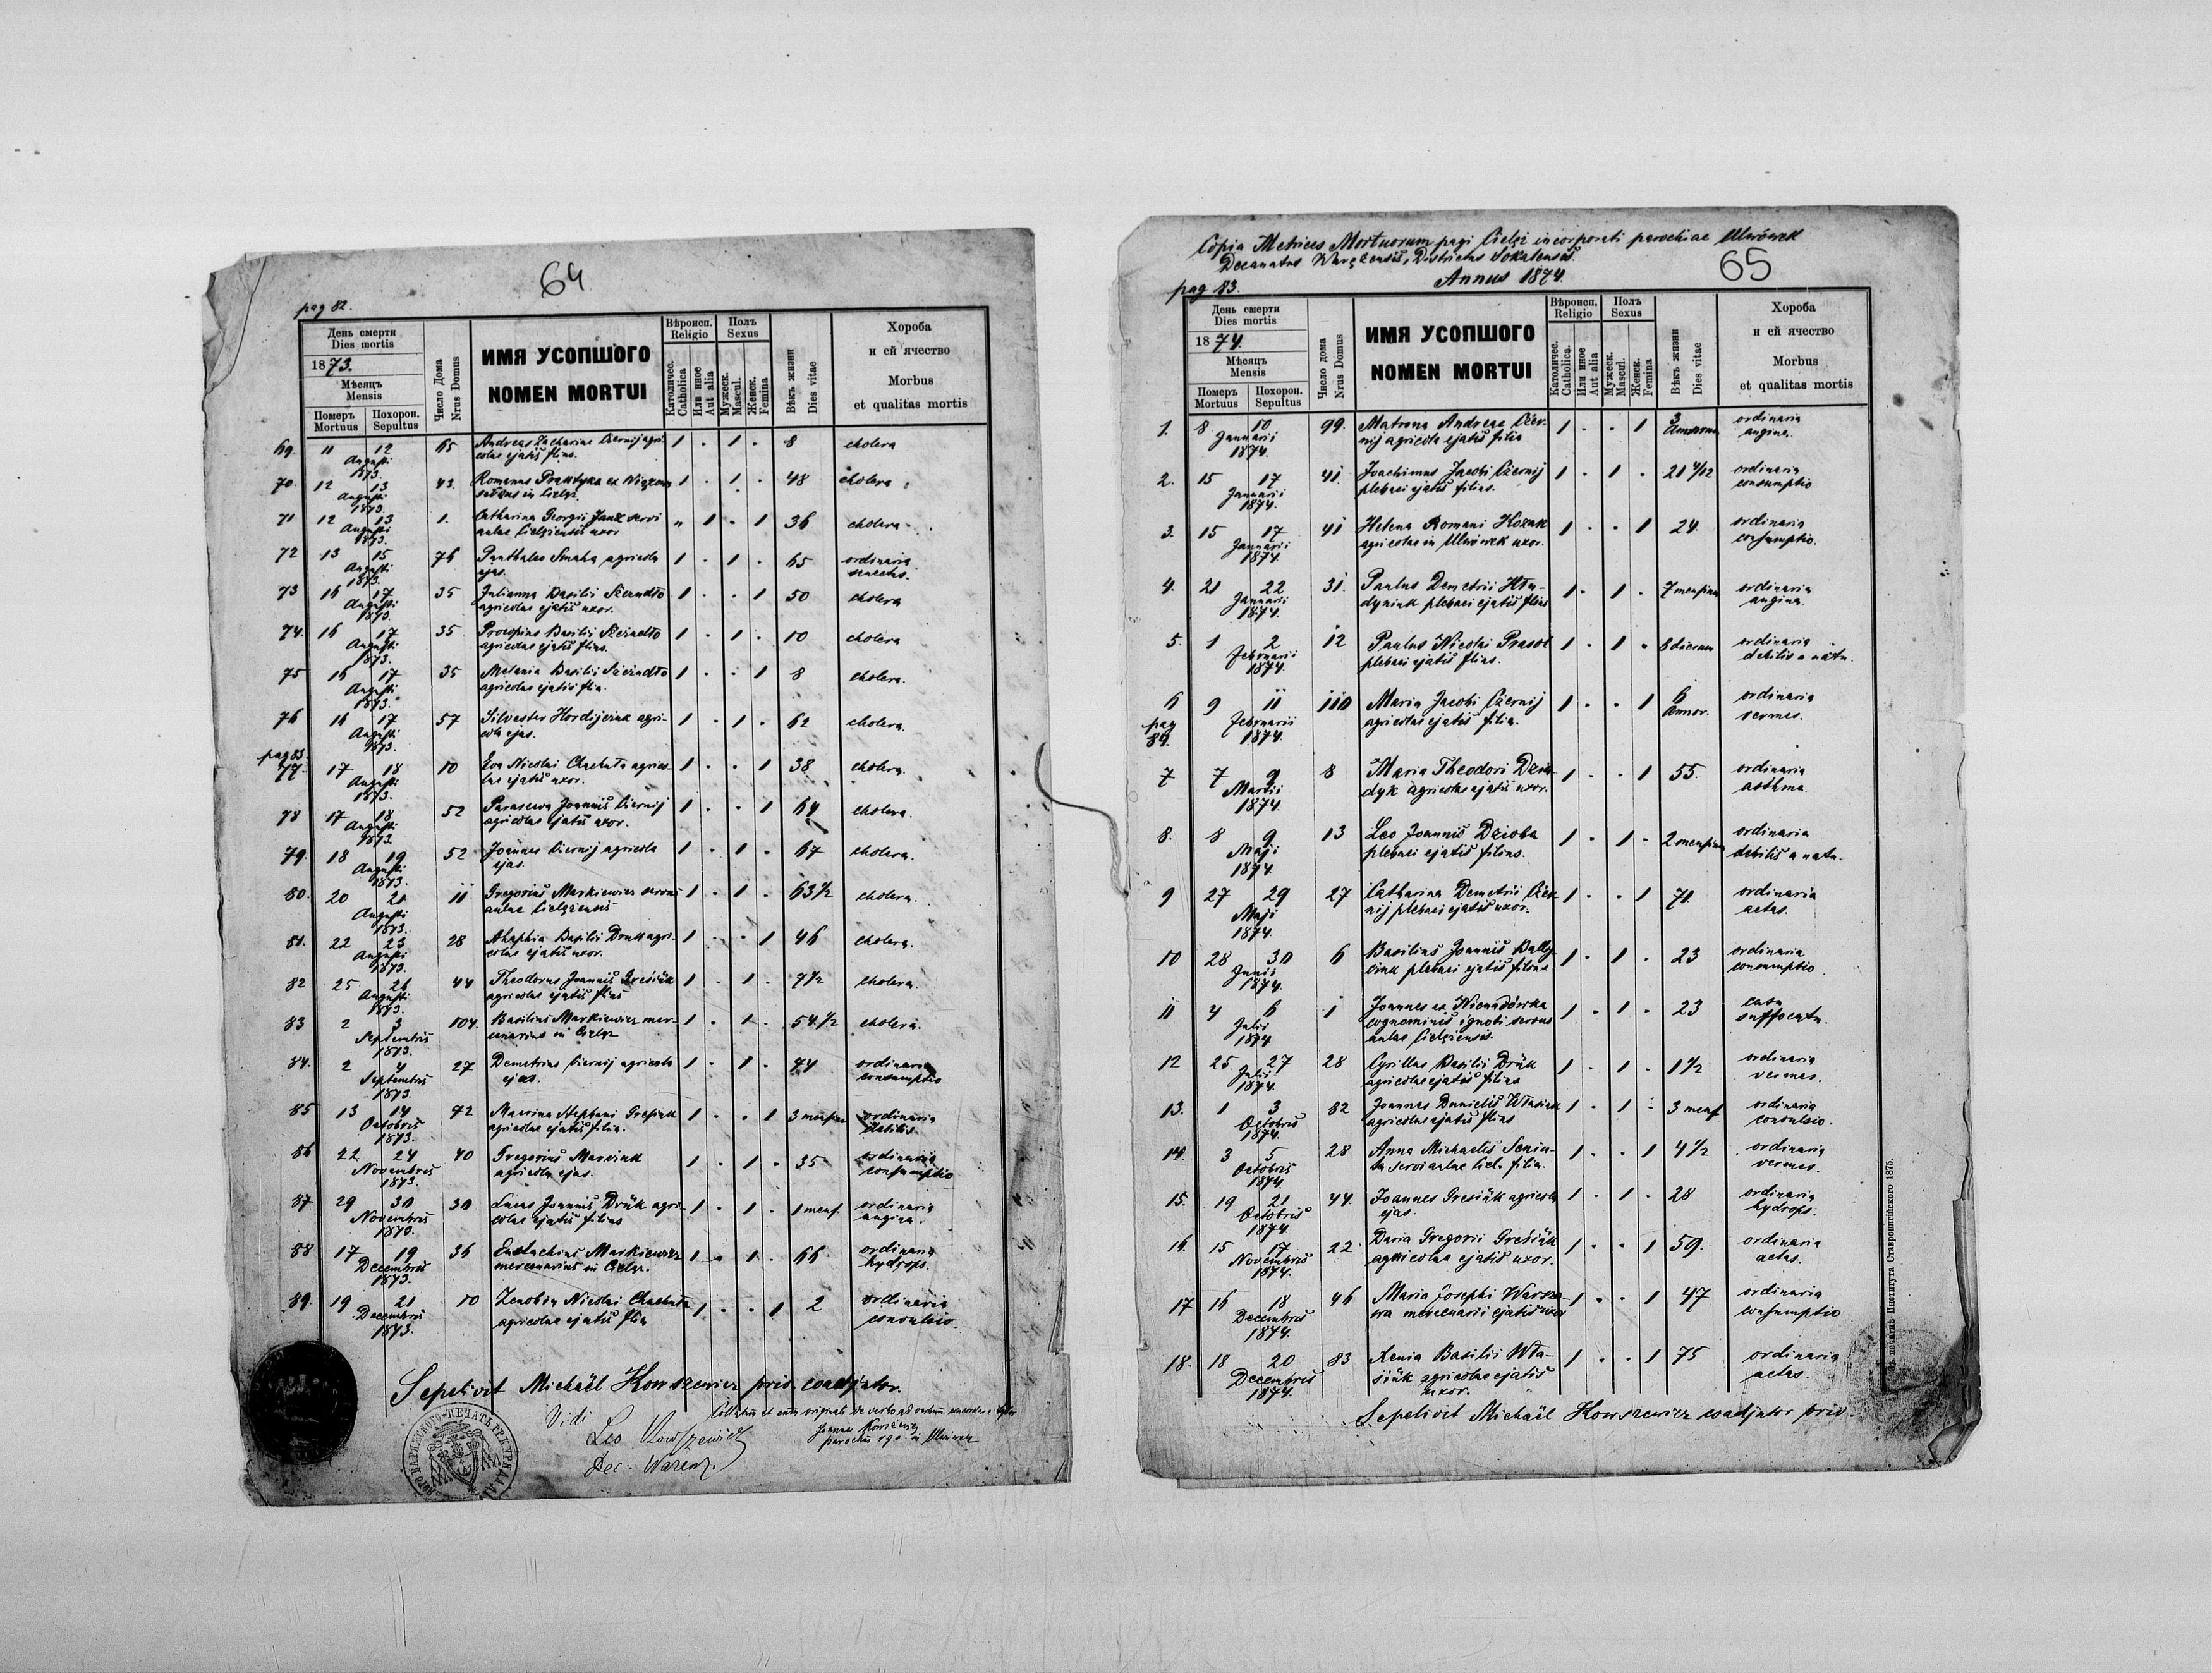 64
pag 82.
День смерти
Dies mortis
1873.
Мѣсяць
Mensis
Померъ
Mortuus
Похорон.
Sepultus
Число Дома
Nrus Domus
ИМЯ УСОПШОГО
NOMEN MORTUI
Вѣроисп.
Religio
Католичес.
Catholica
Или иное
Aut alia
Полъ
Sexus
Мужеск.
Mascul.
Женск.
Femina
Вѣкъ жизни
Dies vitae
Хороба
и ей ячество
Morbus
et qualitas mortis
69. 11 12 Augusti 1873. 65 Andreas Zachariae Czernij agri-
colae ejatis flius. 1 . 1 . 8 cholera
70. 12 13 Augusti 1873. 43. Romanus Praktyka ex
servus in Cieląż 1 . 1 . 48 cholera
71 12 13 Augusti 1873. 1. Catharina Georgii servi
aulae Cielążensis uxor " 1 . 1 36 cholera
72 13 15 Augusti 1873. 76 Panthaleo Smaha agricola
ejas. 1 . 1 . 65 ordinaria
senectus.
73 16 17 Augusti 1873. 35 Julianna Basilii
agricolae ejatis uxor. 1 . . 1 50 cholera
74. 16 17 Augusti 1873. 35 Procopius Basilii
agricolae ejatis flius. 1 . 1 . 10 cholera
75 16 17 Augusti 1873. 35 Melania Basilii
agricolae ejatis flia. 1 . . 1 8 cholera.
76 16 17 Augusti 1873. 57 Silvester Hordijczuk agri-
cola ejas. 1 . 1 . 62 cholera
pag 83
77. 17 18 Augusti 1873. 10 Eva Nicolai Chachuta agrico-
lae ejatis uxor. 1 . . 1 38 cholera.
78 17 18 Augusti 1873. 52 Parasceva Joannis Czernij
agricolae ejatis uxor. 1 . . 1 64 cholera.
79. 18 19 Augusti 1873. 52 Joannes Czernij agricola
ejas. 1 . 1 . 67 cholera.
80. 20 21 Augusti 1873. 11 Gregorius Markiewicz servus
aulae Cielążensis 1 . 1 . 63 1/2 cholera.
81. 22 23 Augusti 1873. 28 Ahaphia Basilii Druk agri-
colae ejatis uxor. 1 . . 1 46 cholera.
82 25 26 Augusti 1873. 44 Theodorus Joannis Gresiük
agricolae ejatis flius 1 . 1 . 7 1/2 cholera.
83 2 3 Septembris 1873. 104. Basilius Markiewicz mer-
cenarius in Cieląż 1 . 1 . 54 1/2 cholera.
84. 2 4 Septembris 1873. 27 Demetrius Czernij agricola
ejas. 1 . 1 . 74 ordinaria
consumptio
85 13 14 Octobris 1873. 72 Macrina Stephani Gresiuk
agricolae ejatis filia. 1 . . 1 3 mensium ordinaria
debilis.
86 22 24 Novembris 1873. 40 Gregorius
agricola ejas. 1 . 1 . 35 ordinaria
consumptio
87 29 30 Novembris 1873. 30 Lucas Joannis Drük agri-
colae ejatis filius 1 . 1 . 1 mens. ordinaria
angina.
88 17 19 Decembris 1873. 36 Eustachius Markiewicz
mercenarius in Cieląż. 1 . 1 . 66 ordinaria
hydrops.
89. 19 21 Decembris 1873. 10 Zenobia Nicolai Chachuta
agricolae ejatis flia 1 . . 1 2 ordinaria
convulsio.
Sepelivit Michaël Kowszewicz priv. coadjutor.
Collatum et cum originali de verbo ad verbum
Vidi
Leo Kowszewicz
Dec. Warenz.
65
Copia Metrices Mortuorum pagi Cieląż incorporati parochiae Ulwówek
Decanatus Waręzensis, Districtus Sokalensis.
Annus 1874.
pag 83.
День смерти
Dies mortis
1874.
Мѣсяць
Mensis
Померъ
Mortuus
Похорон.
Sepultus
Число дома
Nrus Domus
ИМЯ УСОПШОГО
NOMEN MORTUI
Вѣроисп.
Religio
Католичес.
Catholica.
Или иное
Aut alia
Полъ
Sexus
Мужеск.
Mascul.
Женск.
Femina
Вѣкъ жизни
Dies vitae
Хороба
и ей ячество
Morbus
et qualitas mortis
1. 8 10 Januarii 1874. 99. Matrona Andreae Czer-
nij agricolae ejatis filia 1 . . 1 3 annorum ordinaria
angina.
2. 15 17 Januarii 1874. 41. Joachimus Jacobi Czernij
plebaei ejatis filius. 1 . 1 . 21 4/12 ordinaria
consumptio
3. 15 17 Januarii 1874. 41 Helena Romani Kozak
agricolae in Ulwówek uxor. 1 . . 1 24. ordinaria
consumptio.
4. 21 22 Januarii 1874. 31. Paulus Demetrii Hła-
plebaei ejatis flius 1 . 1 . 7 mensium ordinaria
angina.
5. 1 2 Februarii 1874. 12 Paulus Nicolai Prasol
plebaei ejatis flius. 1 . 1 . 8 dierum ordinaria
debilis a natu.
6 9 11 Februarii 1874. 110 Maria Jacobi Czernij
agricolae ejatis filia. 1 . . 1 6 annor. ordinaria
vermes.
pag
84.
7 7 9 Martii 1874. 8 Maria Theodori Dzia-
dyk agricolae ejatis uxor. 1 . . 1 55. ordinaria
asthma.
8. 8 9 Maji 1874. 13 Leo Joannis Dzioba
plebaei ejatis filius. 1 . 1 . 2 mensium ordinaria
debilis a natu.
9 27 29 Maji 1874. 27 Catharina Demetrii Czer-
nij plebaei ejatis uxor. 1 . . 1 71. ordinaria
aetas.
10 28 30 Junii 1874. 6 Basilius Joannis
plebaei ejatis filius 1 . 1 . 23 ordinaria
consumptio.
11 4 6 Julii 1874 1 Joannes ex
cognominis ignoti servus
aulae Cielążensis. 1 . 1 . 23 casu
suffocatu.
12 25 27 Julii 1874. 28 Cyrillus Basilii Drük
agricolae ejatis filius 1 . 1 . 1 1/2 ordinaria
vermes.
13. 1 3 Octobris 1874. 82 Joannes Danielis Własiuk
agricolae ejatis flius 1 . 1 . 3 mens. ordinaria
convulsio.
14. 3 5 Octobris 1874. 28 Anna Michaelis Seniu-
ta servi aulae Ciel. filia. 1 . . 1 4 1/2 ordinaria
vermes.
15. 19 21 Octobris 1874. 44. Joannes Gresiük agricola
ejas. 1 . 1 . 28 ordinaria
hydrops.
16. 15 17 Novembris 1874. 22 Daria Gregorii Gresiük
agricolae ejatis uxor. 1 . . 1 59. ordinaria
aetas.
17 16 18 Decembris 1874. 46 Maria Josephi Warsza-
wa mercenarii ejatis uxor 1 . . 1 47 ordinaria
consumptio
18. 18 20 Decembris 1874. 83 Xenia Basilii Wła-
siük agricolae ejatis
uxor. 1 . . 1 75 ordinaria
aetas.
Sepelivit Michaël Kowszewicz coadjutor priv.
Института Ставропигійского 1875.